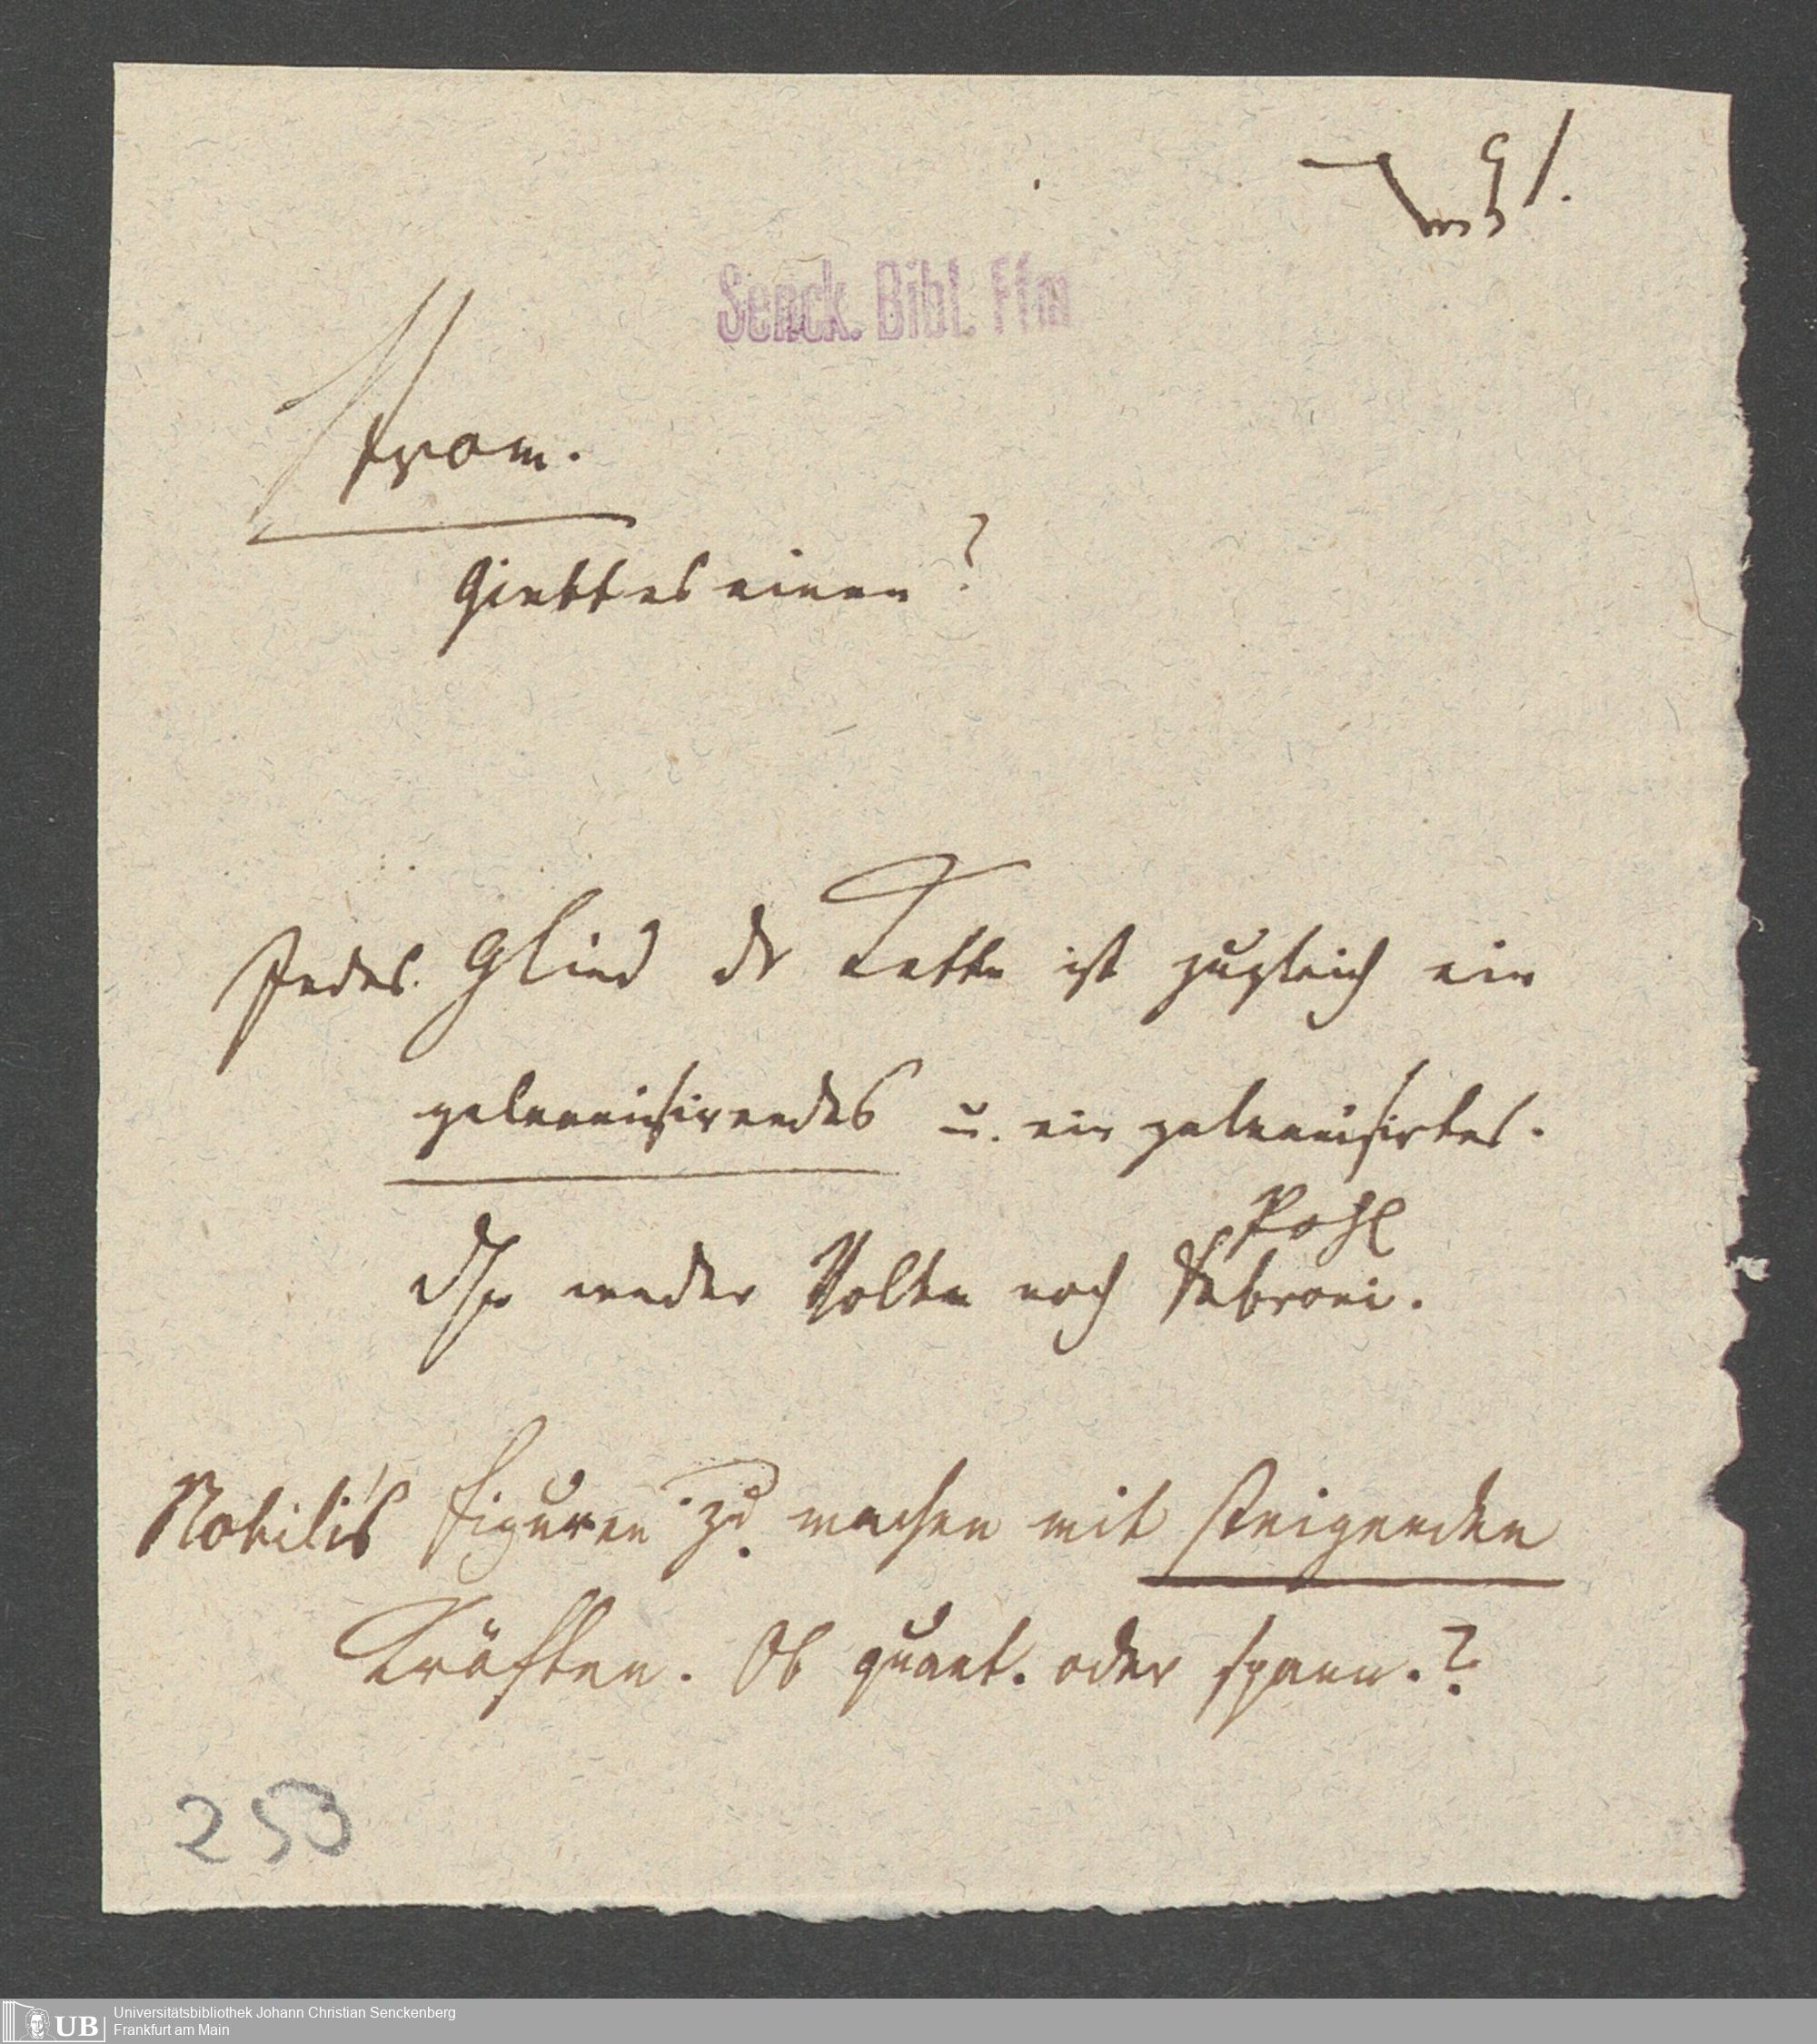 91.
Senck. Bibl. Ffm
Strom.
Giebt es einen?
Jedes Glied dr Kette ist zugleich ein
galvanisirendes u. ein galvanisirtes.
Pohl
weder Volta noch Fabroni.
Nobili's Figuren zu machen mit steigenden
Kräften. Ob quant. oder spann.?
253
UB
Universitätsbibliothek Johann Christian Senckenberg
Frankfurt am Main